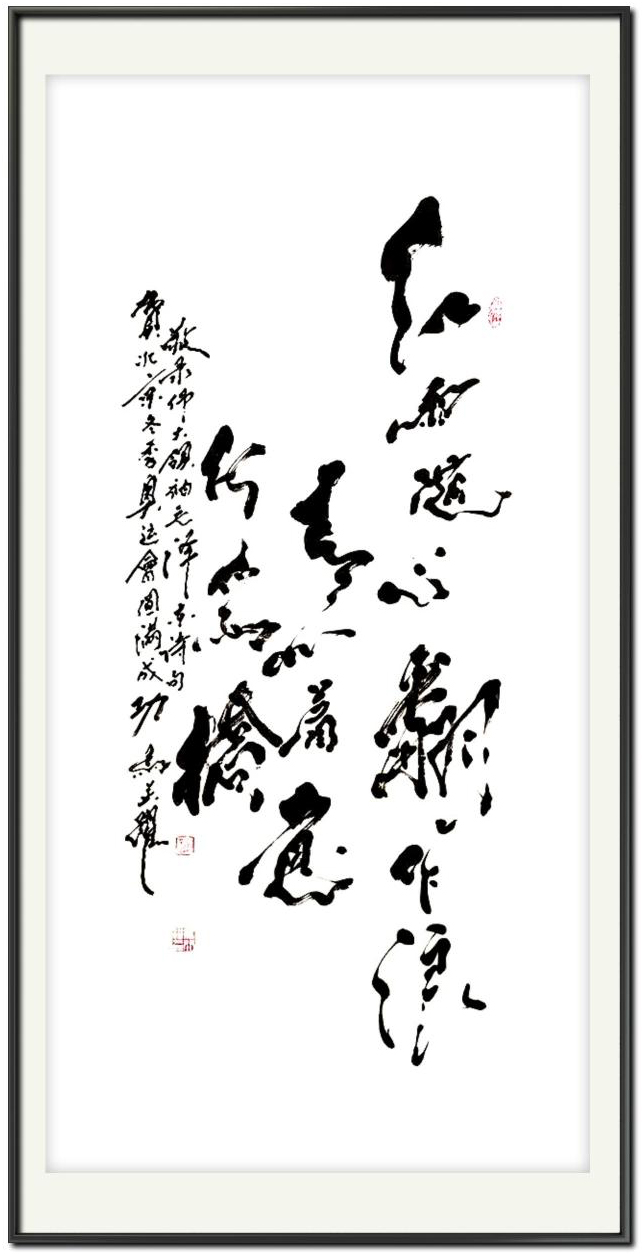 红雨随心翻作浪
青山着意
化为橋
敬录伟大领袖毛泽东诗句
賀北京冬季奥运會圓滿成功